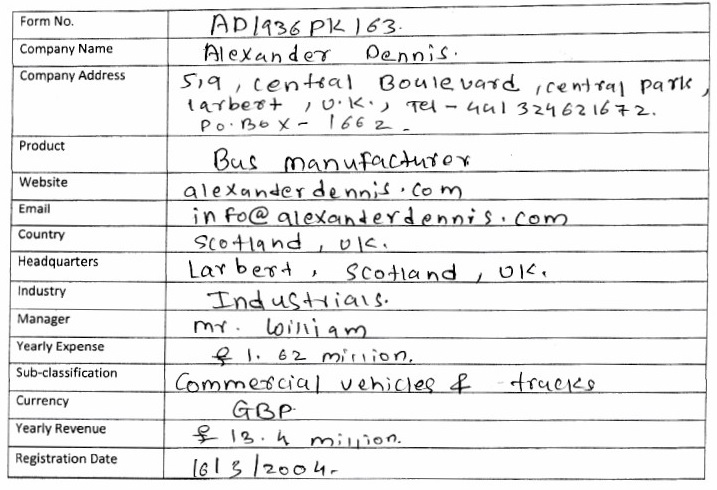 Form No. AD1936PK163.
Company Name Alexander Dennis.
Company Address 5,9, central Boulevard, central park,
larbert, U.K., Tel - 441324621672.
P.O. Box - 1662.
Product Bus manufacturer
Website alexanderdennis.com
Email info@alexanderdennis.com
Country Scotland, UK.
Headquarters Larbert, Scotland, UK.
Industry Industrials.
Manager mr. William
Yearly Expense £ 1.62 million.
Sub-classification Commercial vehicles & trucks
Currency GBP
Yearly Revenue £ 13.4 million.
Registration Date 16/3/2004.